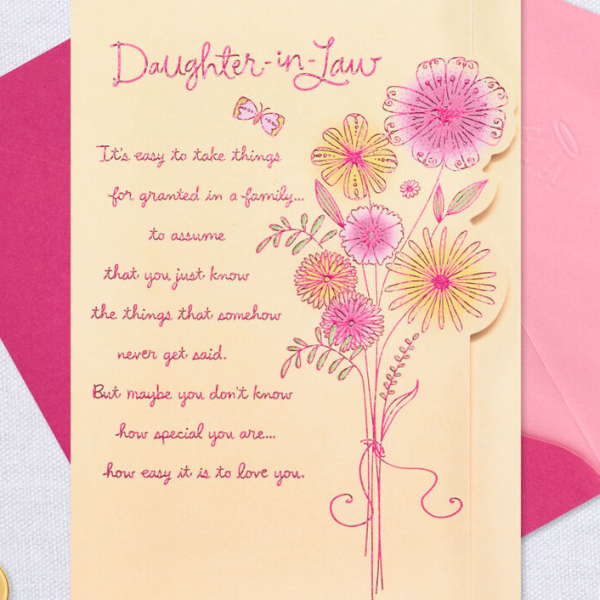 Daughter-in-Law
It's easy to take things
for granted in a family...
to assume
that you just know
the things that somehow
never get said.
But maybe you don't know
how special you are...
how easy it is to love you.